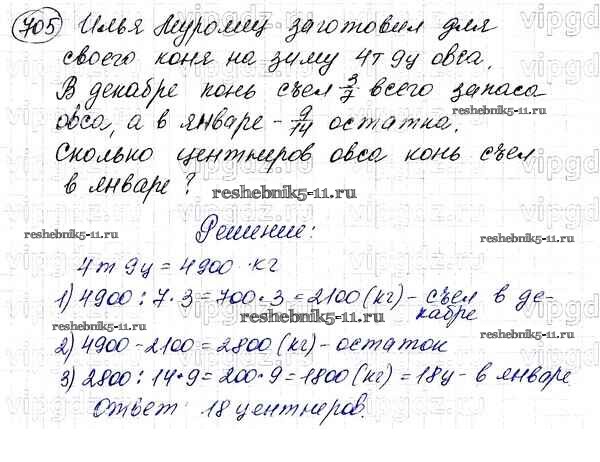 705 Илья Муромец заготовил для
своего коня на зиму 4т 9ц овса.
В декабре конь съел 3/7 всего запаса
овса, а в январе - 9/14 остатка.
Сколько центнеров овса конь съел
в январе?
Решение:
4т 9ц = 4900 кг
1) 4900 : 7 · 3 = 700 · 3 = 2100 (кг) - съел в де-
кабре
2) 4900 - 2100 = 2800 (кг) - остаток
3) 2800 : 14 · 9 = 200 · 9 = 1800 (кг) = 18ц - в январе
Ответ: 18 центнеров.
reshebnik5-11.ru
reshebnik5-11.ru
reshebnik5-11.ru
reshebnik5-11.ru
reshebnik5-11.ru
reshebnik5-11.ru
vipgdz.ru